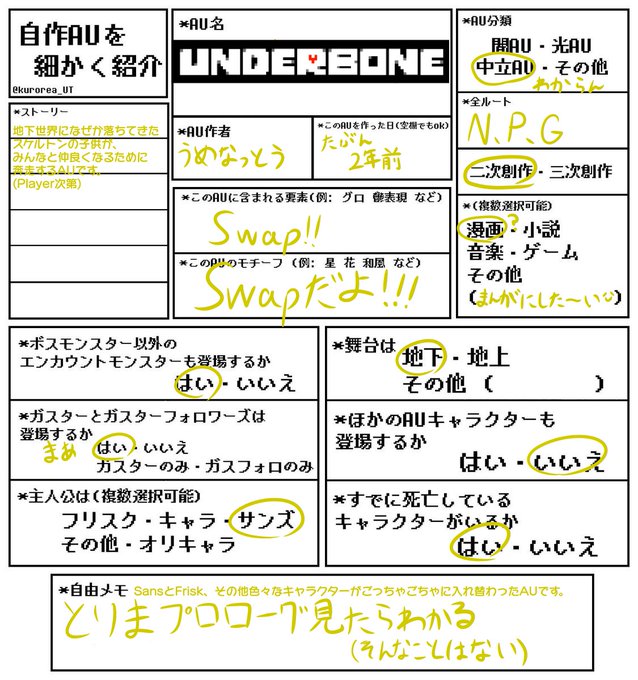 自作AUを
細かく紹介
@kurorea_UT
*AU名
UNDERBONE
*AU分類
闇AU・光AU
中立AU・その他
わからん
*ストーリー
地下世界になぜか落ちてきた
スケルトンの子供が、
みんなと仲良くなるために
奔走するAUです。
(Player次第)
*AU作者
うめなっとう
*このAUを作った日(空欄でもok)
たぶん
2年前
*全ルート
N、P、G
二次創作・三次創作
*このAUに含まれる要素(例: グロ 鬱表現 など)
Swap!!
*このAUのモチーフ (例: 星 花 和風 など)
Swapだよ!!!
*(複数選択可能)
漫画?・小説
音楽・ゲーム
その他
(まんがにした〜い)
*ボスモンスター以外の
エンカウントモンスターも登場するか
はい・いいえ
*ガスターとガスターフォロワーズは
登場するか
まぁ はい・いいえ
ガスターのみ・ガスフォロのみ
*主人公は(複数選択可能)
フリスク・キャラ・サンズ
その他・オリキャラ
*舞台は 地下・地上
その他 ( )
*ほかのAUキャラクターも
登場するか
はい・いいえ
*すでに死亡している
キャラクターがいるか
はい・いいえ
*自由メモ SansとFrisk、その他色々なキャラクターがごっちゃごちゃに入れ替わったAUです。
とりまプロローグ見たらわかる
(そんなことはない)